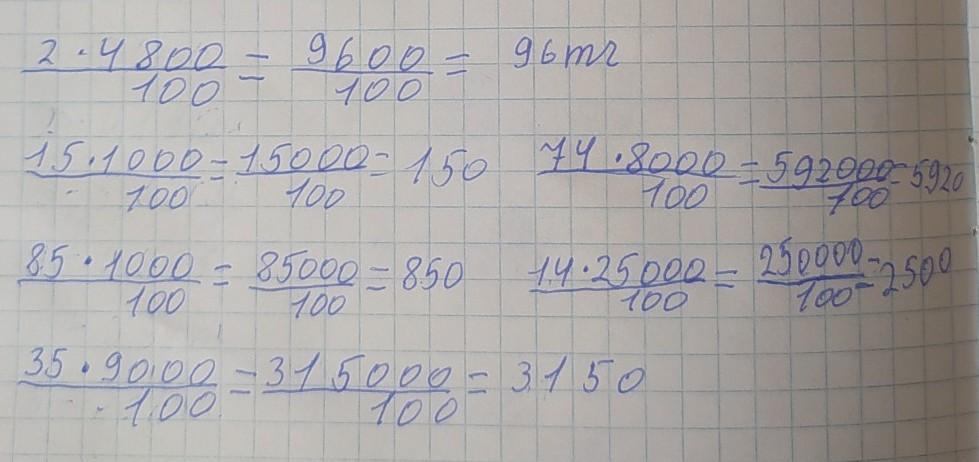 2·4800/100 = 9600/100 = 96тг
15·1000/100 = 15000/100 = 150 74·8000/100 = 592000/100 = 5920
85·1000/100 = 85000/100 = 850 14·25000/100 = 250000/100 = 2500
35·9000/100 = 315000/100 = 3150